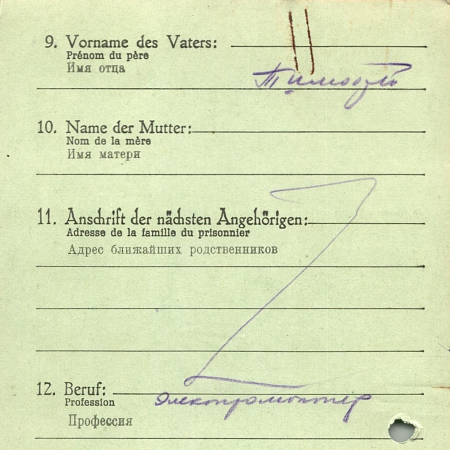 9. Vorname des Vaters:
Prénom du père
Имя отца
Тимофей
10. Name der Mutter:
Nom de la mère
Имя матери
11. Anschrift der nächsten Angehörigen:
Adresse de la famille du prisonnier
Адрес ближайших родственников
12. Beruf:
Profession
Профессия
Электромонтер